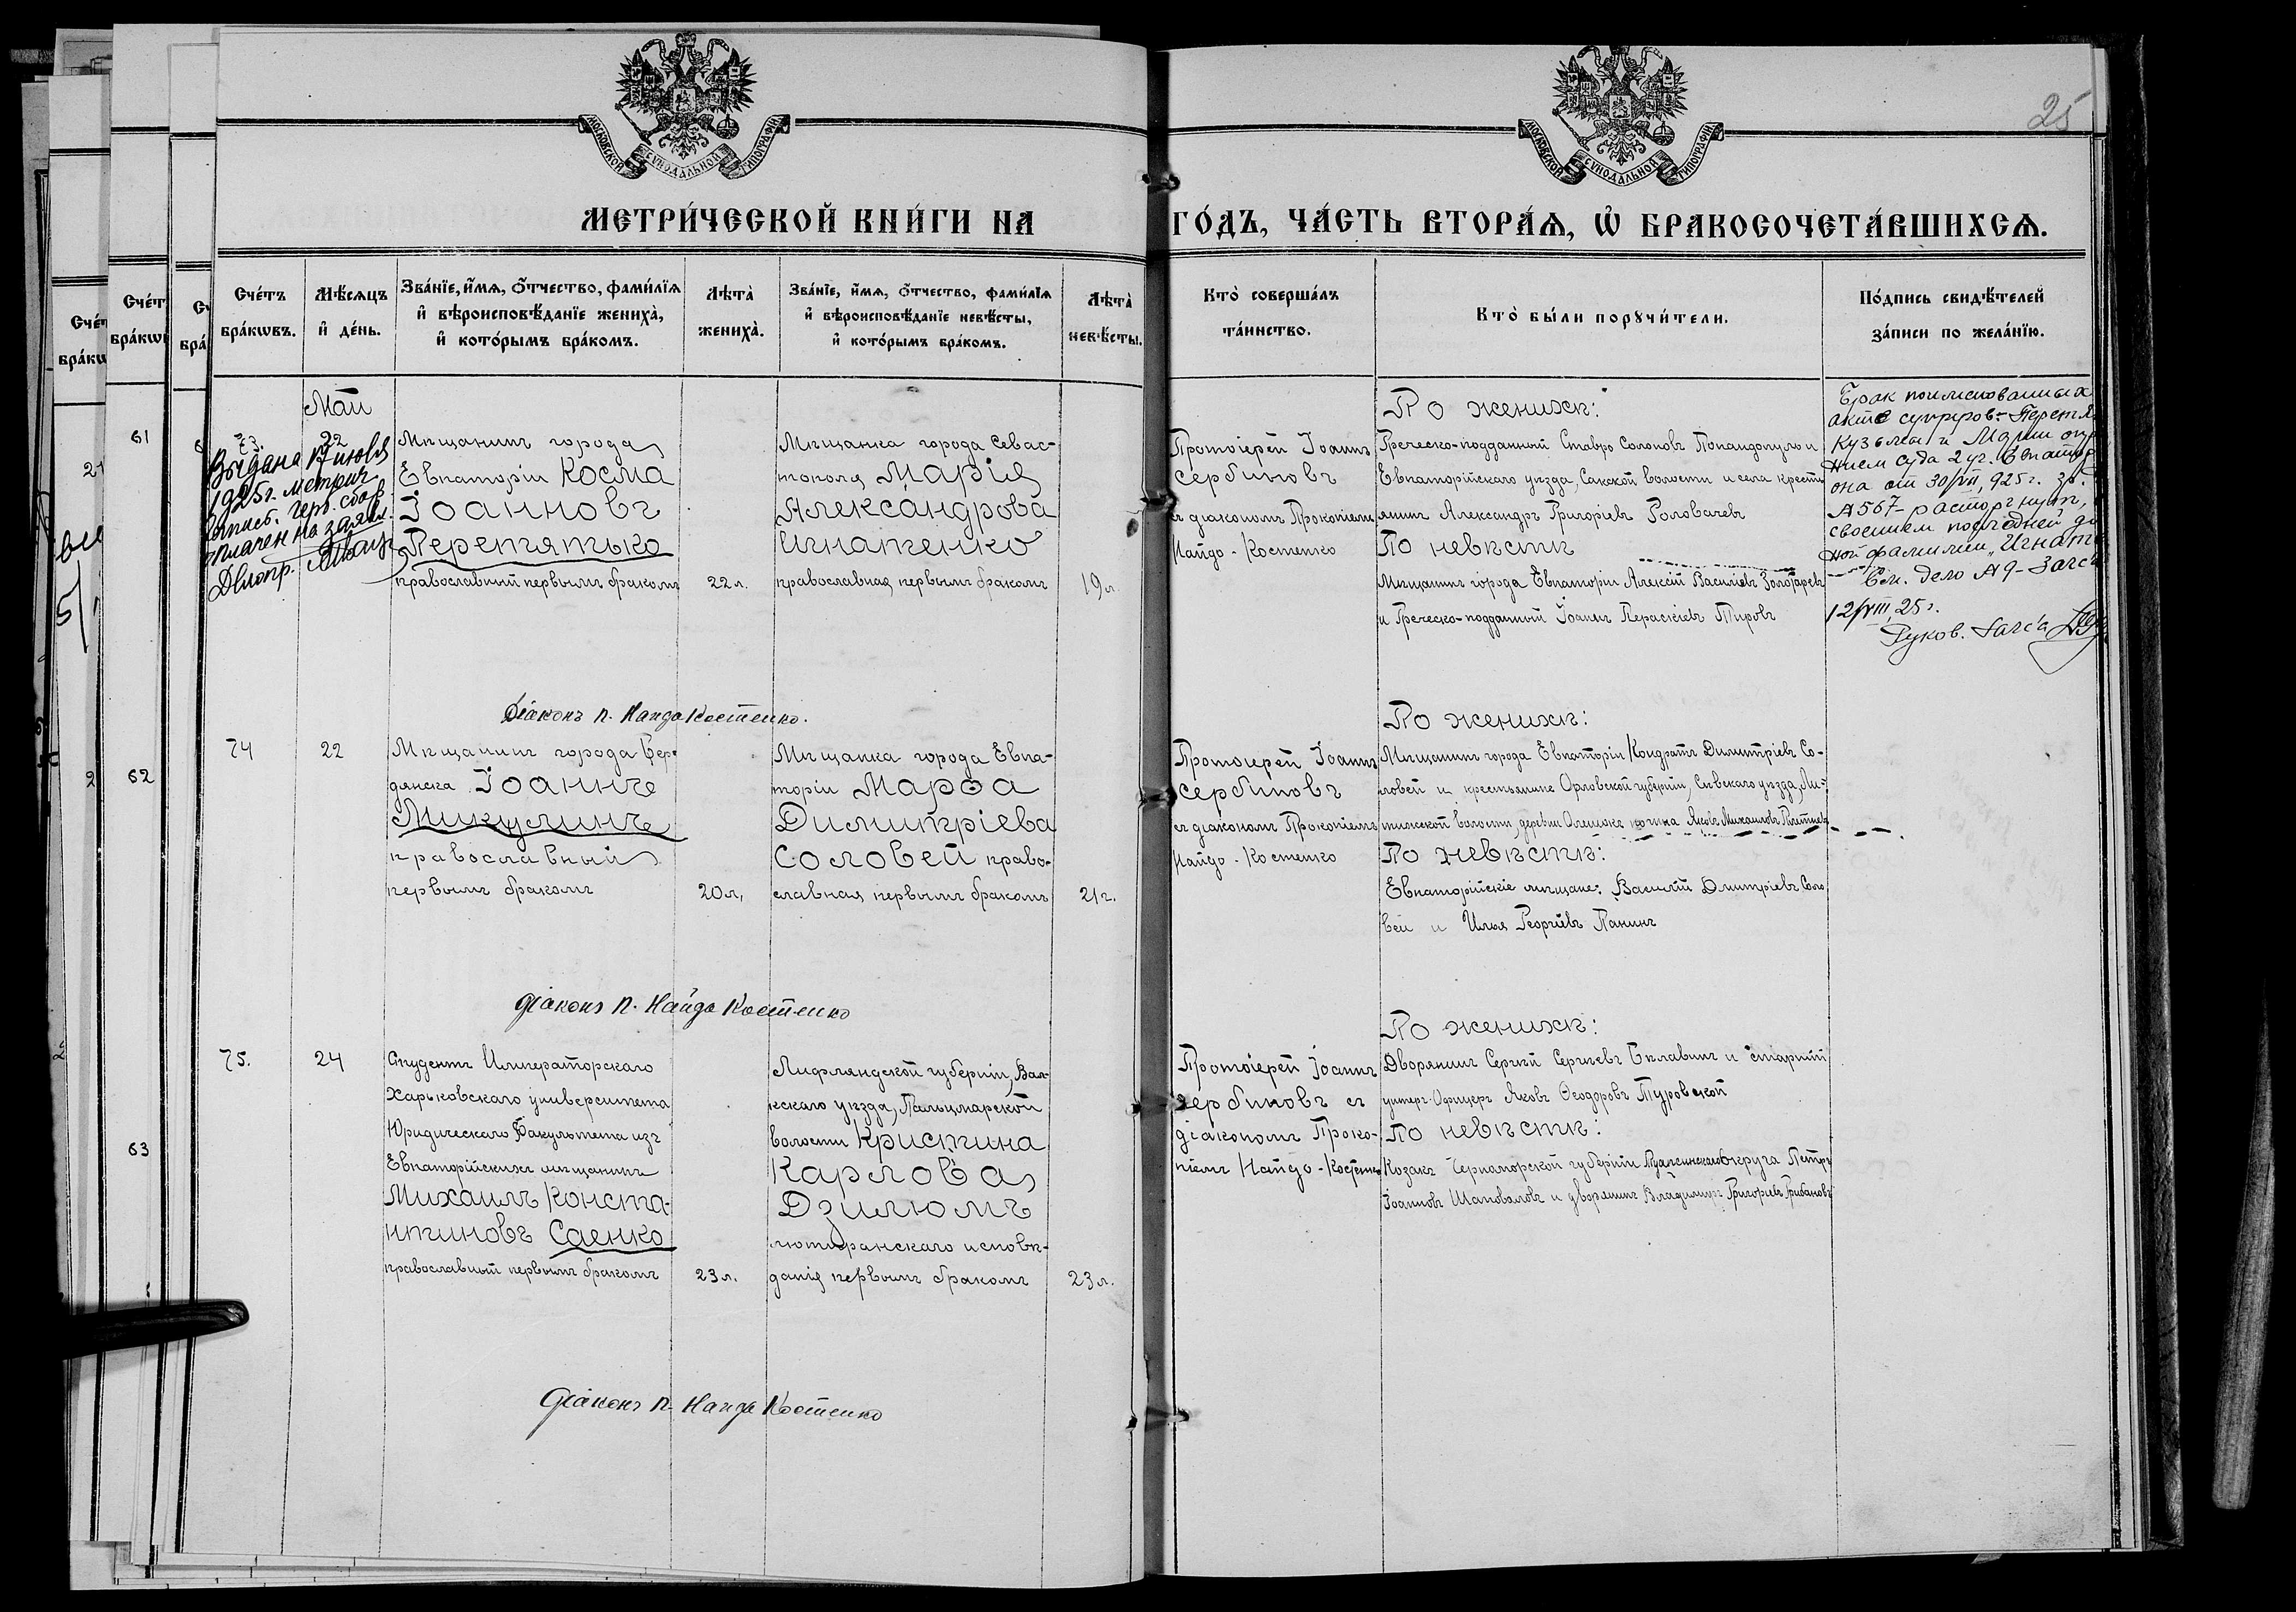 25
МОСКОВСКОЙ СѴНОДАЛЬНОЙ ТИПОГРАФІИ
МОСКОВСКОЙ СѴНОДАЛЬНОЙ ТИПОГРАФІИ
МЕТРИ́ЧЕСКОЙ КНИ́ГИ НА
ГО́ДЪ, ЧА́СТЬ ВТОРА́Ѧ, Ѽ БРАКОСОЧЕТА́ВШИХСѦ.
Сче́тъ бра́кѡвъ.
Мѣ́сяцъ и҆ де́нь.
Зва́нїе, и҆́мѧ, ѻ҆́тчество, фами́лїѧ
и҆ вѣроисповѣ́данїе жениха̀,
и҆ кото́рымъ бра́комъ.
Лѣта̀ жениха̀.
Зва́нїе, и҆́мѧ, ѻ҆́тчество, фами́лїѧ
и҆ вѣроисповѣ́данїе невѣ́сты,
и҆ кото́рымъ бра́комъ.
Лѣта̀ невѣ́сты.
Кто̀ соверша́лъ
та́инство.
Кто̀ бы́ли порꙋчи́тели.
По́дпись свидѣ́телей
за́писи по жела́нїю.
61
62
63
Май
73
22
Выдана 17 июля
1925 г. метрич.
выпис. герб. сбор
оплачен на заявл.
Мѣщанинъ города
Евпаторіи Косма
Іоанновъ
Перетятько
православный первымъ бракомъ
22 л.
Мѣщанка города Севас-
тополя Марія
Александрова
Игнатенко
православная первымъ бракомъ
19 л.
Протоіерей Іоаннъ
Сербиновъ
съ діакономъ Прокопіемъ
Найдо-Костенко
По женихѣ:
Греческо-подданный Ставро Солоновъ Попандопуло и
Евпаторійскаго уѣзда, Сакской волости и села кресть
янинъ Александръ Григоріевъ Головачевъ
По невѣстѣ
Мѣщанинъ города Евпаторіи Алексій Василіевъ Золотаревъ
и Греческо-подданный Іоаннъ Параскіевъ Тировъ
Брак поименованных
акте супругов- Перетя
Кузьмы и Марии опр
нием суда 2 уч. Евпатор
она от 30/VII, 925 г. за
№ 567- расторгнут,
своением последней до
ной фамилии „Игнат
См. дело № 9- Загса
12/VIII, 25 г.
Руков. Загса
Діаконъ П. Найдо Костенко.
74
22
Мѣщанинъ города Бер-
дянска Іоаннъ
Микулинъ
православный
первымъ бракомъ
20 л.
Мѣщанка города Евпа-
торіи Марѳа
Димитріева
Соловей право-
славная первымъ бракомъ
21 г.
Протоіерей Іоаннъ
Сербиновъ
съ діакономъ Прокопіемъ
Найдо-Костенко
По женихѣ:
Мѣщанинъ города Евпаторіи Кондратъ Димитріевъ Со-
ловей и крестьянинъ Орловской губерніи, Сѣвскаго уѣзда,
волости, деревни Яковъ Михаиловъ
По невѣстѣ:
Евпаторійскіе мѣщане: Василій Дмитріевъ Соло
вей и Илья Георгіевъ Панинъ
Діаконъ П. Найдо Костенко
75.
24
Студентъ Императорскаго
Харьковскаго университета
Юридическаго Факультета изъ
Евпаторійскихъ мѣщанинъ
Михаилъ Конста-
нтиновъ Саенко
православный первымъ бракомъ
23 л.
Лифляндской губерніи, Вал-
кскаго уѣзда, Пальцмарской
волости Кристина
Карлова
Дзилюмъ
лютеранскаго исповѣ-
данія первымъ бракомъ
23 л.
Протоіерей Іоаннъ
Сербиновъ съ
діакономъ Проко-
піемъ Найдо-Костенко
По женихѣ:
Дворянинъ Сергій Сергіевъ Бклавинъ и старшій
унтеръ-Офицеръ Яковъ Ѳеодоровъ Туровской
По невѣстѣ:
Козакъ Черноморской губерніи Туапсинскаго округа Петръ
Іоанновъ Шаповаловъ и дворянинъ Владимиръ Григорьевъ Грибановъ
Діаконъ П. Найдо Костенко